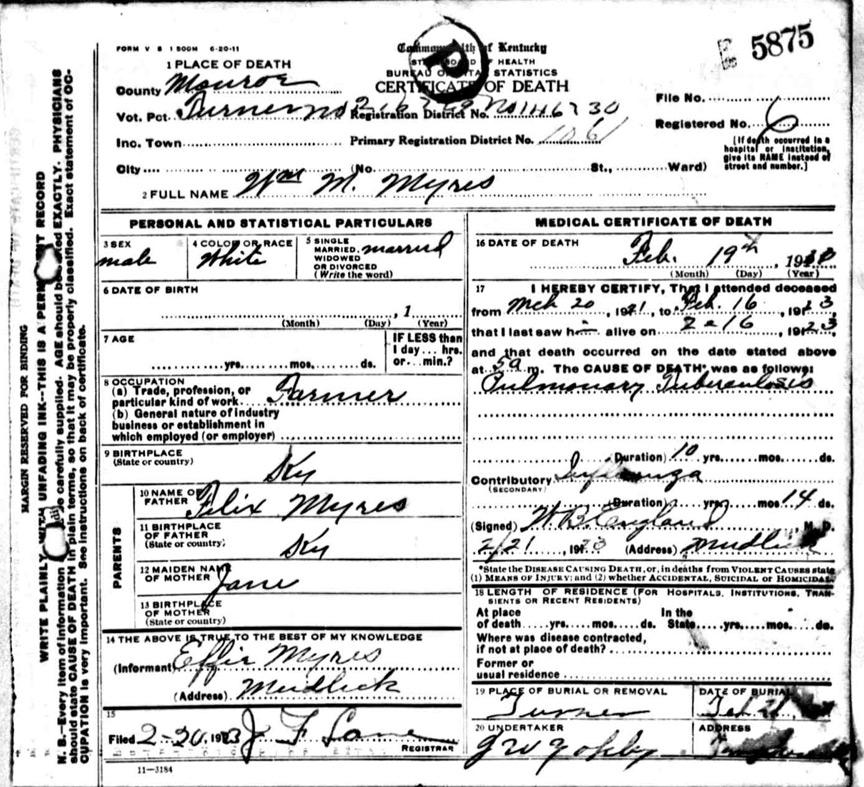 FORM V S 1 500M 6-20-11
Commonwealth of Kentucky
STATE BOARD OF HEALTH
BUREAU OF VITAL STATISTICS
CERTIFICATE OF DEATH
5875
1 PLACE OF DEATH
County Monroe
Vot. Pct. Turner No 2 Registration District No.
File No.
Registered No. 6
Inc. Town Primary Registration District No.
[If death occurred in a hospital or institution, give its NAME instead of street and number.]
City (No. St., Ward)
2 FULL NAME Wm M. Myres
PERSONAL AND STATISTICAL PARTICULARS
3 SEX
male
4 COLOR OR RACE
White
5 SINGLE
MARRIED, married
WIDOWED
OR DIVORCED
(Write the word)
6 DATE OF BIRTH
, 1
(Month) (Day) (Year)
7 AGE
yrs. mos. ds.
IF LESS than
1 day... hrs.
or... min.?
8 OCCUPATION
(a) Trade, profession, or
particular kind of work Farmer
(b) General nature of industry
business or establishment in
which employed (or employer)
9 BIRTHPLACE
(State or country)
Ky
PARENTS
10 NAME OF
FATHER Felix Myres
11 BIRTHPLACE
OF FATHER
(State or country)
Ky
12 MAIDEN NAME
OF MOTHER Jane
13 BIRTHPLACE
OF MOTHER
(State or country)
14 THE ABOVE IS TRUE TO THE BEST OF MY KNOWLEDGE
(Informant) Effie Myres
(Address) Mudlick
15
Filed 2-20, 1923 J F Lane
REGISTRAR
11—3184
MEDICAL CERTIFICATE OF DEATH
16 DATE OF DEATH
Feb. 19th, 19
(Month) (Day) (Year)
17 I HEREBY CERTIFY, That I attended deceased
from Mch 20, 1921, to Feb. 16, 1923
that I last saw h alive on 2-16, 1923
and that death occurred on the date stated above
at 5a m. The CAUSE OF DEATH* was as follows:
Pulmonary Tuberculosis
(Duration) 10 yrs. mos. ds.
Contributory Influenza
(SECONDARY)
(Duration) yrs. mos 14 ds.
(Signed) W B England M. D.
2/21, 1923 (Address) Mudlick
*State the DISEASE CAUSING DEATH, or, in deaths from VIOLENT CAUSES state
(1) MEANS OF INJURY; and (2) whether ACCIDENTAL, SUICIDAL or HOMICIDAL.
18 LENGTH OF RESIDENCE (FOR HOSPITALS, INSTITUTIONS, TRANSIENTS OR RECENT RESIDENTS)
At place In the
of death yrs. mos. ds. State yrs. mos. ds.
Where was disease contracted,
if not at place of death?
Former or
usual residence
19 PLACE OF BURIAL OR REMOVAL
Turner
DATE OF BURIAL
Feb 21
20 UNDERTAKER
ADDRESS
MARGIN RESERVED FOR BINDING
WRITE PLAINLY WITH UNFADING INK--THIS IS A PERMANENT RECORD
N. B.--Every item of information should be carefully supplied. AGE should be stated EXACTLY. PHYSICIANS
should state CAUSE OF DEATH in plain terms, so that it may be properly classified. Exact statement of OC-
CUPATION is very important. See instructions on back of certificate.
P